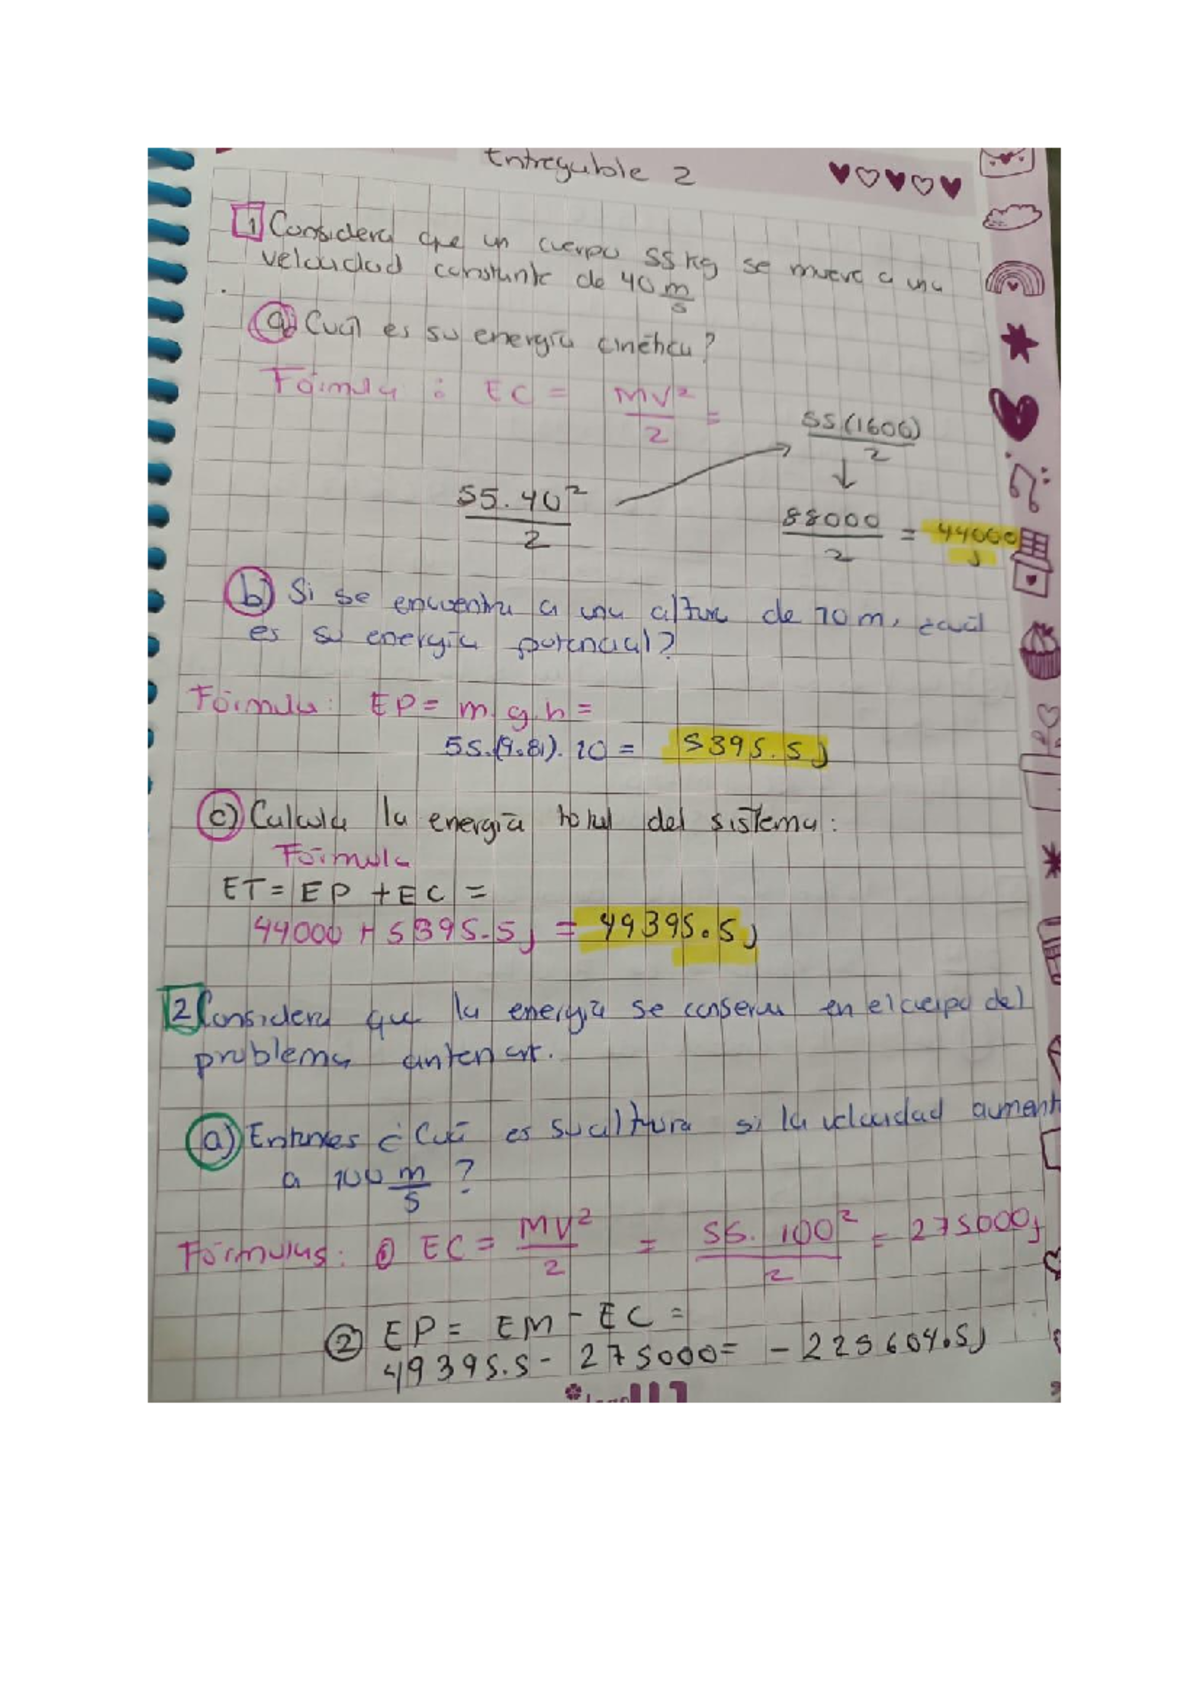 Entregable 2
1 Considera que un cuerpo 55 kg se mueve a una
velocidad constante de 40 m/s
a) Cuál es su energía cinética?
Fórmula : EC = MV²/2 =
55(1600)/2
55.40²/2
88000/2 = 44000 J
b) Si se encuentra a una altura de 10 m, ¿cuál
es su energía potencial?
Fórmula: EP = m.g.h =
55.(9.81).10 = 5395.5 J
c) Calcula la energía total del sistema:
Fórmula
ET = EP + EC =
44000 + 5395.5 J = 49395.5 J
2 Considera que la energía se conserva en el cuerpo del
problema anterior.
a) Entonces ¿Cuál es su altura si la velocidad aument
a 100 m/s ?
Fórmulas: ① EC = MV²/2 = 55.100²/2 = 275000 J
② EP = EM - EC =
49395.5 - 275000 = - 225604.5 J